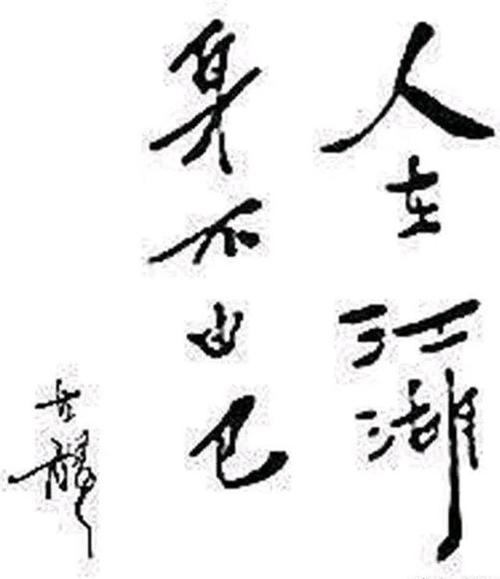 人在江湖
身不由己
古龍